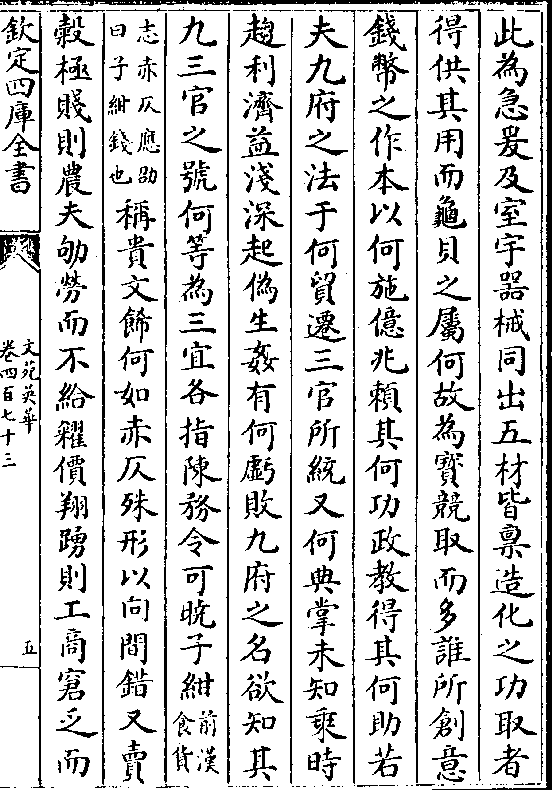 此為急爰及室宇器械同出五材皆稟造化之功取者
得供其用而龜貝之屬何故為寳競取而多誰所創意
錢幣之作本以何施億兆賴其何功政教得其何助若
夫九府之法于何貿遷三官所統又何典掌未知乘時
趨利濟益淺深起偽生姦有何虧敗九府之名欲知其
九三官之號何等為三宜各指陳務令可曉子紺前漢食貨
志赤仄應劭曰子紺錢也稱貴文餙何如赤仄殊形以何間錯又賣
糓極賤則農夫劬勞而不給糴價翔踴則工商窘乏而
欽定四庫全書
文苑英華
卷四百七十三
五